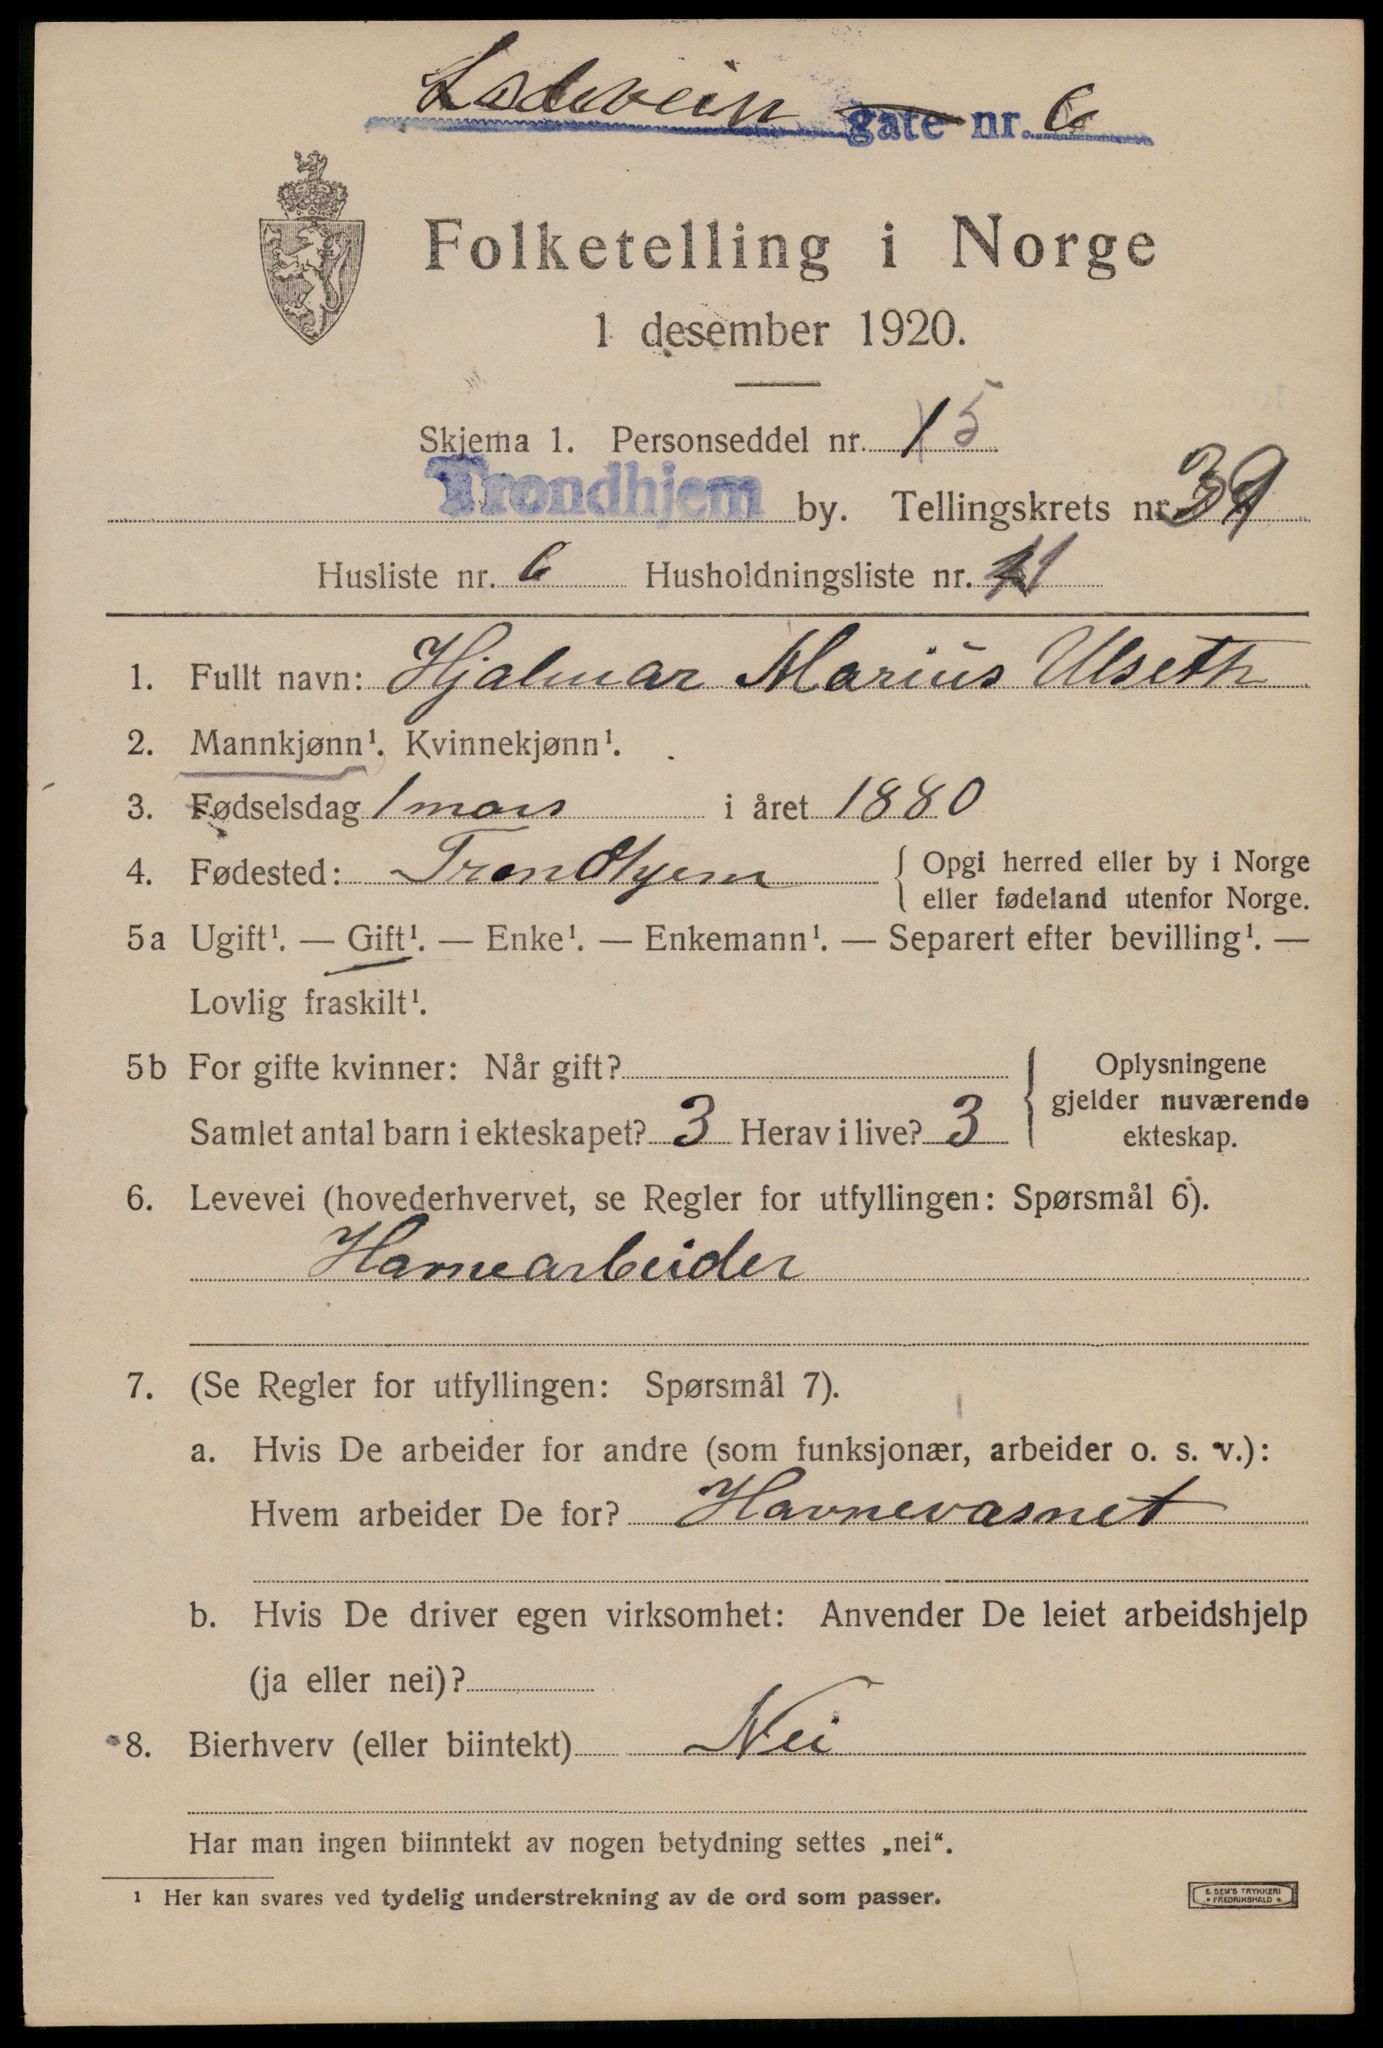 Ladevein gate nr. 6
Folketelling i Norge
1 desember 1920.
Skjema 1. Personseddel nr. 15
Trondhjem by. Tellingskrets nr. 39
Husliste nr. 6 Husholdningsliste nr. 11
1. Fullt navn: Hjalmar Marius Ulseth
2. Mannkjønn¹. Kvinnekjønn¹.
3. Fødselsdag 1 mars i året 1880
4. Fødested: Trondhjem { Opgi herred eller by i Norge
eller fødeland utenfor Norge.
5a Ugift¹. — Gift¹. — Enke¹. — Enkemann¹. — Separert efter bevilling¹. —
Lovlig fraskilt¹.
5b For gifte kvinner: Når gift? { Oplysningene
gjelder nuværende
Samlet antal barn i ekteskapet? 3 Herav i live? 3 ekteskap.
6. Levevei (hovederhvervet, se Regler for utfyllingen: Spørsmål 6).
Havnearbeider
7. (Se Regler for utfyllingen: Spørsmål 7).
a. Hvis De arbeider for andre (som funksjonær, arbeider o. s. v.):
Hvem arbeider De for? Havnevæsnet
b. Hvis De driver egen virksomhet: Anvender De leiet arbeidshjelp
(ja eller nei)?
8. Bierhverv (eller biintekt) Nei
Har man ingen biinntekt av nogen betydning settes „nei“.
¹ Her kan svares ved tydelig understrekning av de ord som passer.
E. SEM'S TRYKKERI
• FREDRIKSHALD •